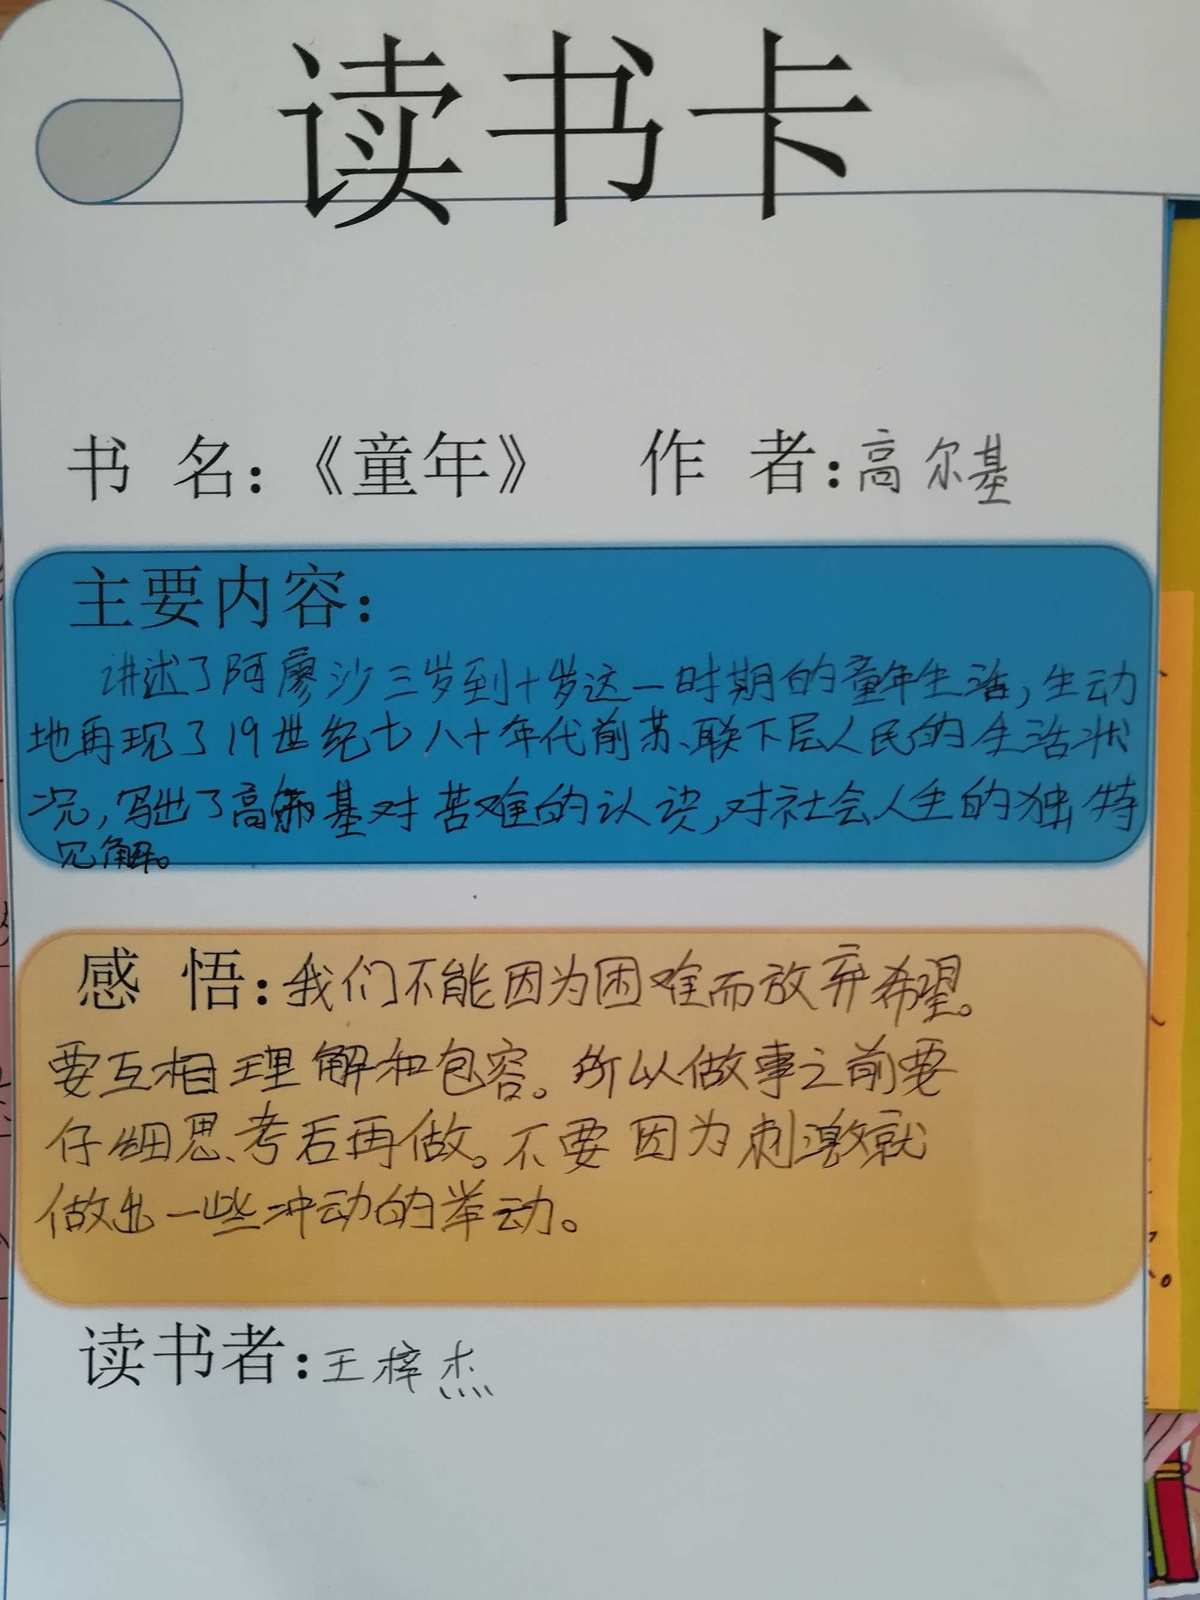 读书卡
书 名：《童年》 作 者：高尔基
主要内容：
讲述了阿廖沙三岁到十岁这一时期的童年生活，生动
地再现了19世纪七八十年代前苏联下层人民的生活状
况，写出了高尔基对苦难的认识，对社会人生的独特
见解。
感 悟：我们不能因为困难而放弃希望。
要互相理解和包容。所以做事之前要
仔细思考后再做。不要因为刺激就
做出一些冲动的举动。
读书者：王梓杰